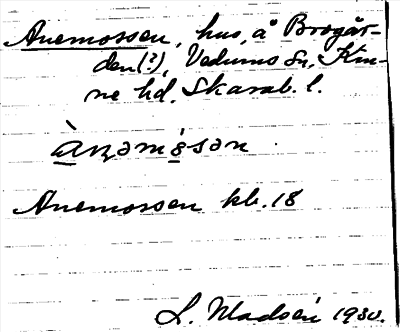 Anemossen, hus, å Brogår-
den (?), Vedums sn, Kin-
ne hd, Skarab. l.
Anemossen kb. 18
L. Madsén 1930.